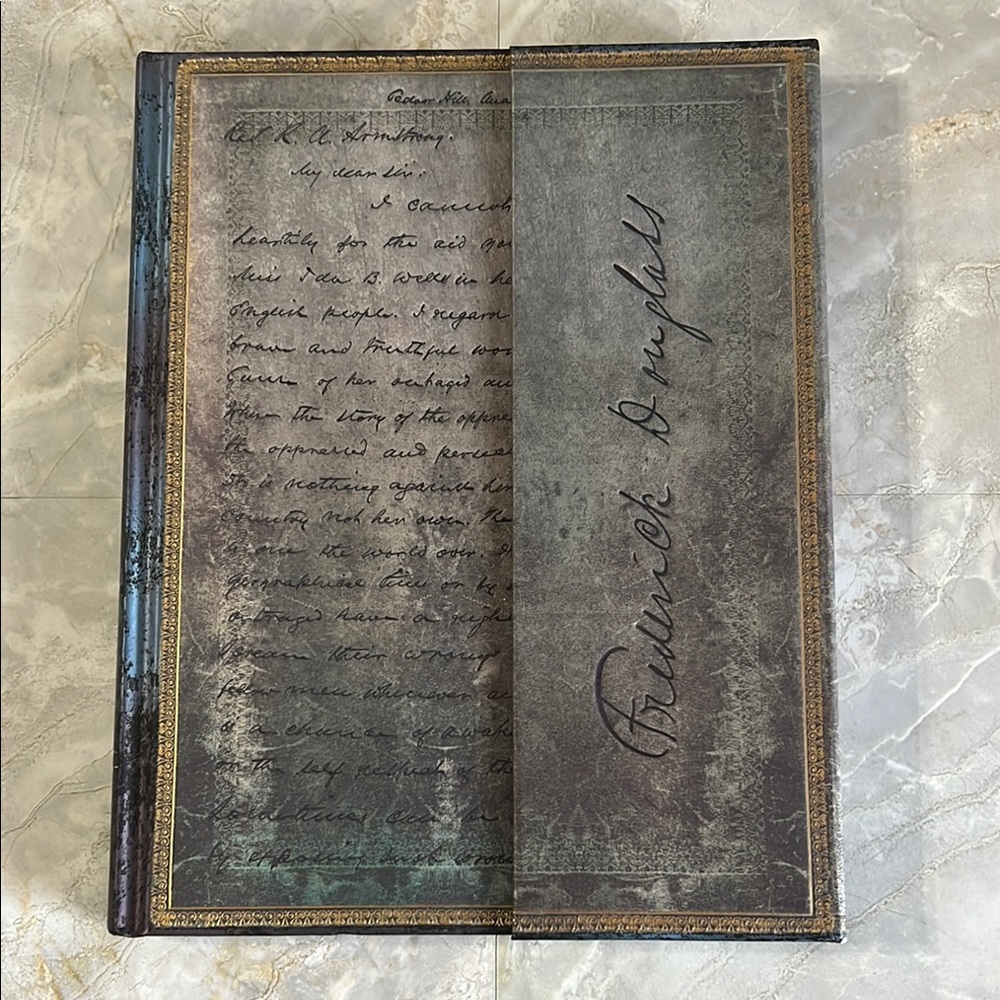 Cedar Hill, Ana
Rev. R. A. Armstrong.
My dear Sir:
I cannot
heartily for the aid you
Miss Ida B. Wells in he
English people. I regard
brave and truthful wo
Cause of her outraged an
When the story of the oppre
the oppressed and perse
It is nothing against her
Country not her own. The
is one the world over.
geographical lines or by
outraged have a righ
their wrongs
fellow men wherever
is a chance of awak
or the self respect of th
Sometimes can be
by exposing such wron
Frederick Douglass